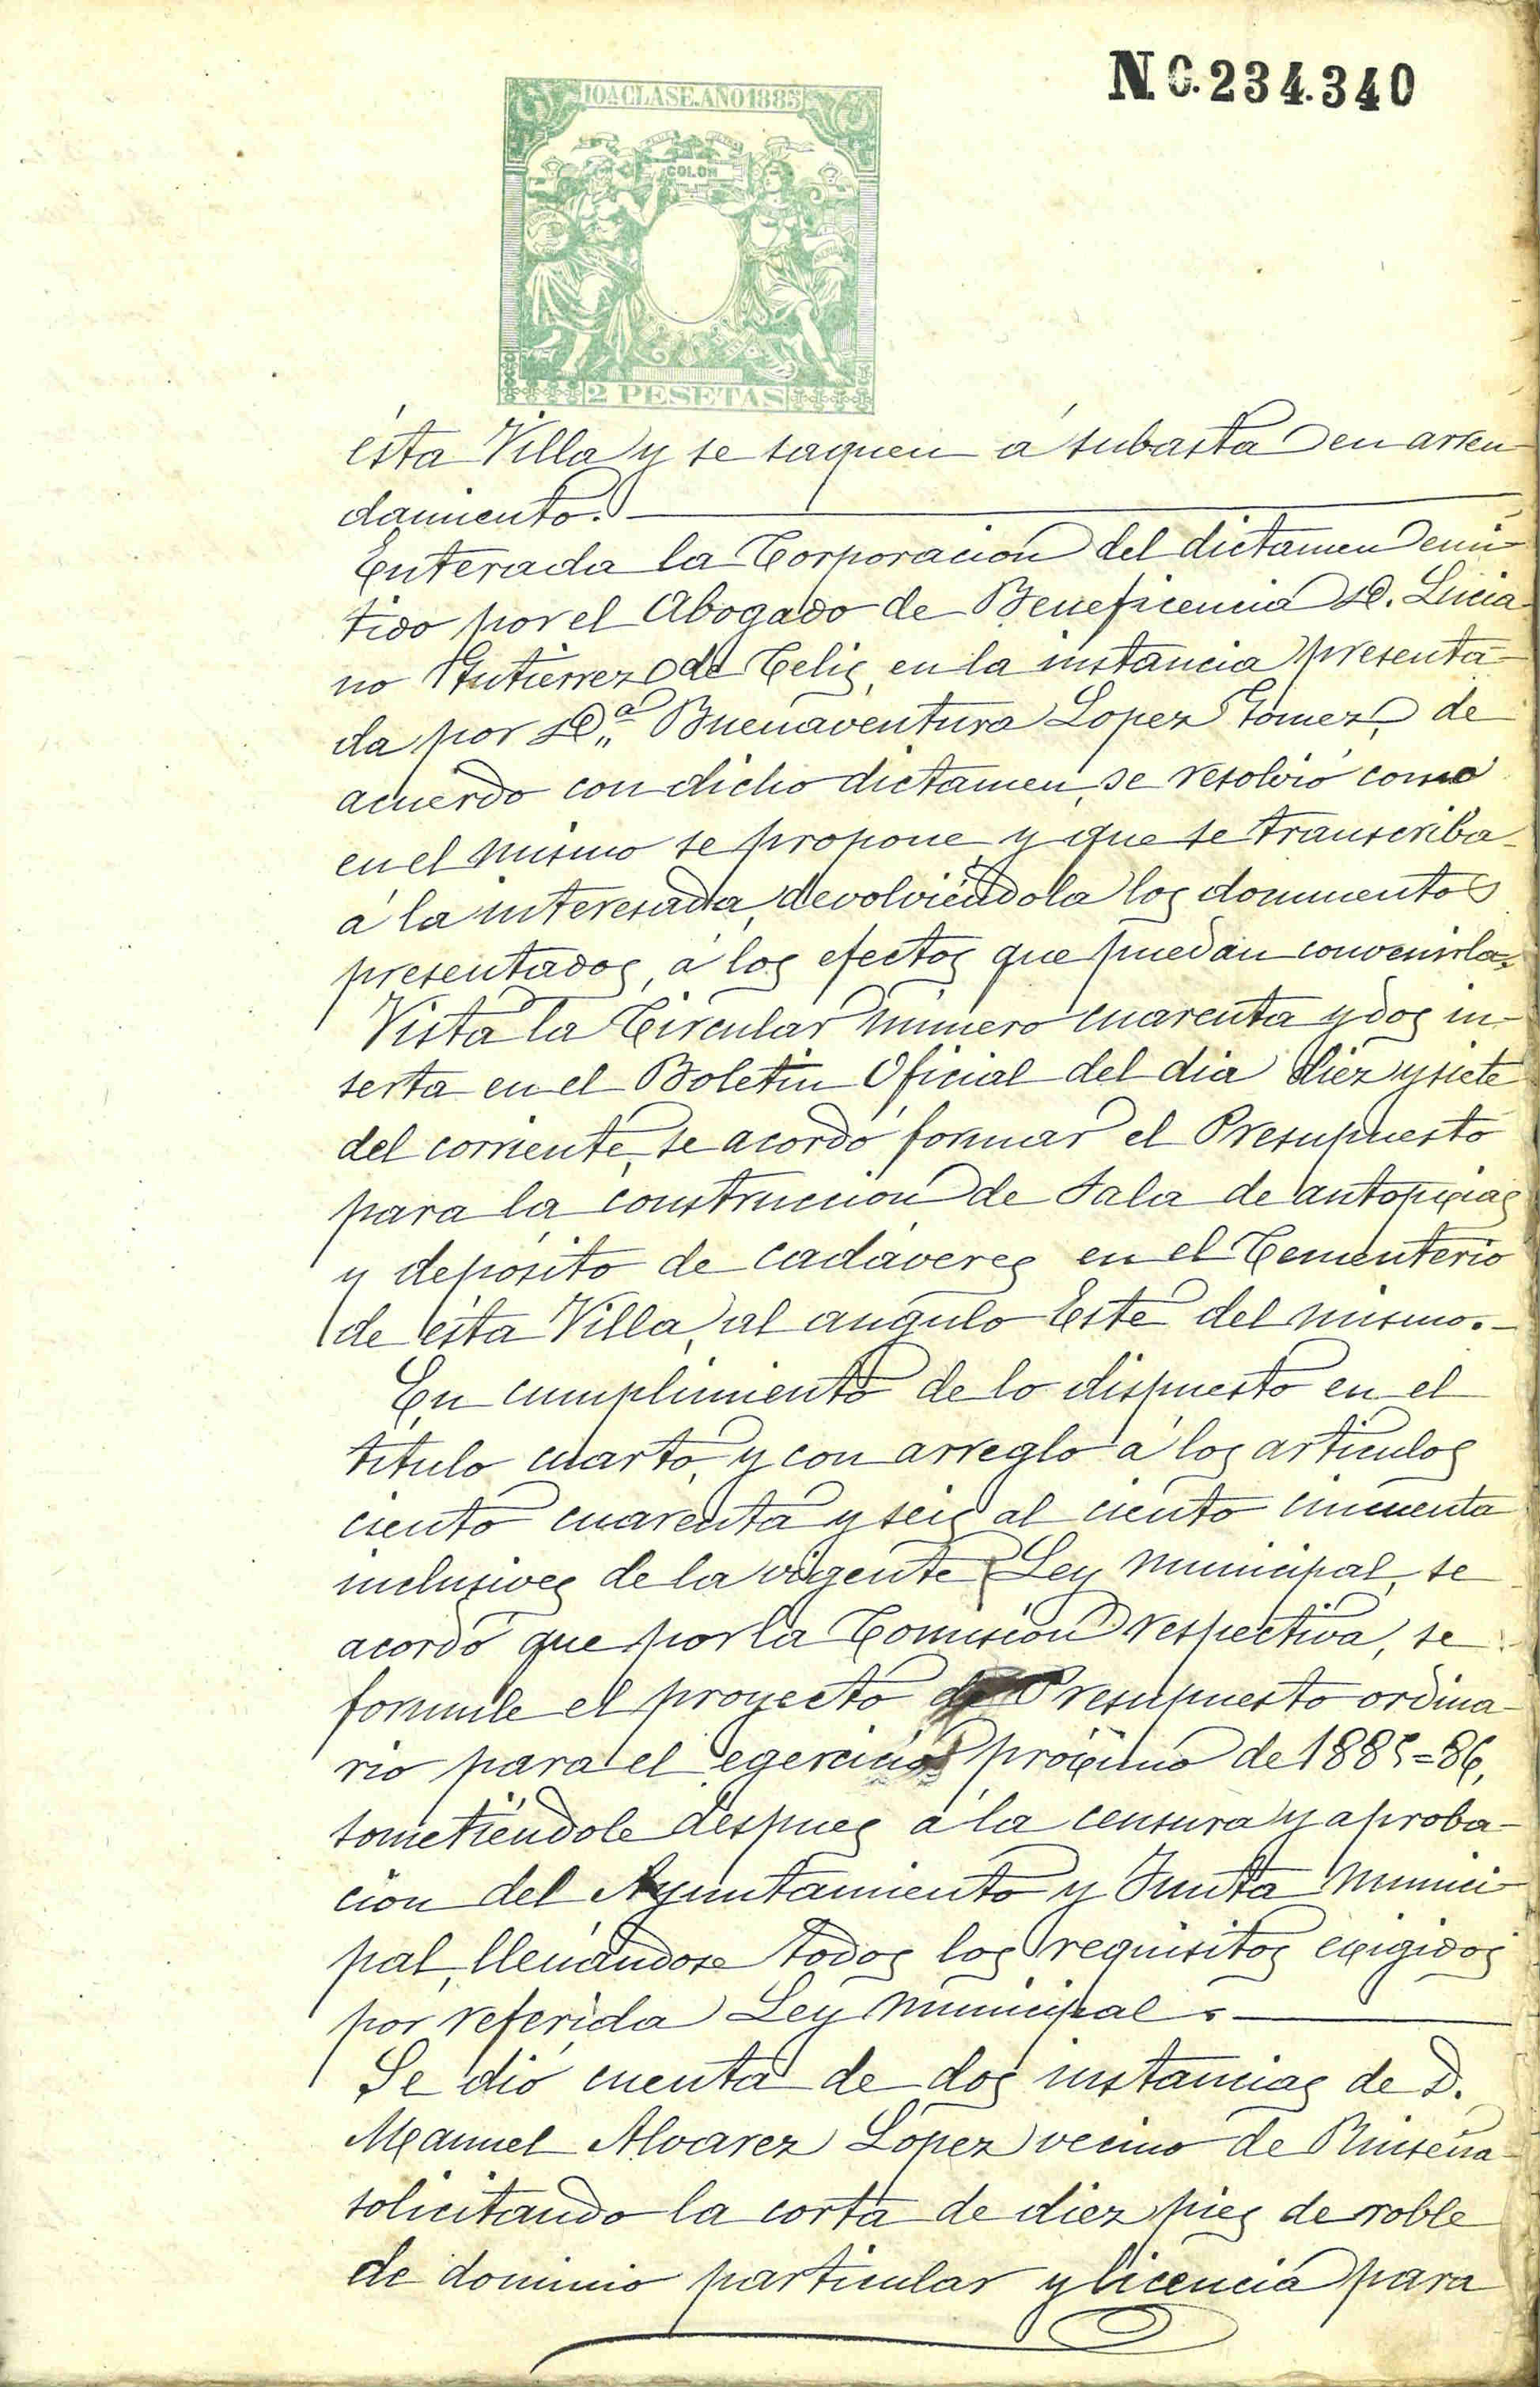 N. 0.234.340
10A. CLASE. AÑO 1885
COLON
2 PESETAS
ésta Villa y se saquen á subasta en arren
damiento.
Enterada la Corporacion del dictamen emi-
tido por el Abogado de Beneficencia D. Lucia-
no Gutierrez de Celis, en la instancia presenta-
da por D.ª Buenaventura Lopez Gomez, de
acuerdo con dicho dictamen, se resolvió como
en el mismo se propone, y que se transcriba
á la interesada, devolviéndola los documentos
presentados, á los efectos que puedan convenirla.
Vista la Circular número cuarenta y dos in-
serta en el Boletin Oficial del dia diez y siete
del corriente, se acordó formar el Presupuesto
para la construccion de Sala de autopsias
y depósito de cadáveres en el Cementerio
de ésta Villa, al angulo Este del mismo.-
En cumplimiento de lo dispuesto en el
título cuarto, y con arreglo á los artículos
ciento cuarenta y seis al ciento cincuenta
inclusives de la vigente Ley municipal, se
acordó que por la Comision respectiva, se
formule el proyecto de Presupuesto ordina-
rio para el egercicio próximo de 1885=86,
sometiéndole despues á la censura y aproba-
cion del Ayuntamiento y Junta munici-
pal, llenándose todos los requisitos exigidos
por referida Ley municipal.
Se dió cuenta de dos instancias de D.
Manuel Alvarez Lopez vecino de
solicitando la corta de diez pies de roble
de dominio particular y licencia para